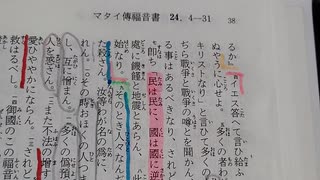 マタイ傳福音書 24, 4—31 38
るか』イエス答へて言ひ給ふ
ぬやうに心せよ。多くの者わ
キリストなり』と言ひて多くの
ち戰爭と戰爭の噂とを聞かん、
る事はあるべきなり、されど
即ち「民は民に、國は國に逆
處に饑饉と地震とあらん、
始なり。そのとき人々なんぢ
た殺さん。汝等わが名の爲に、
れん。その時おほくの
し、互に憎まん。多くの僞預
人を惑さん。また不法の增す
愛ひややかにならん。されど
救はるべし。御國のこの福音